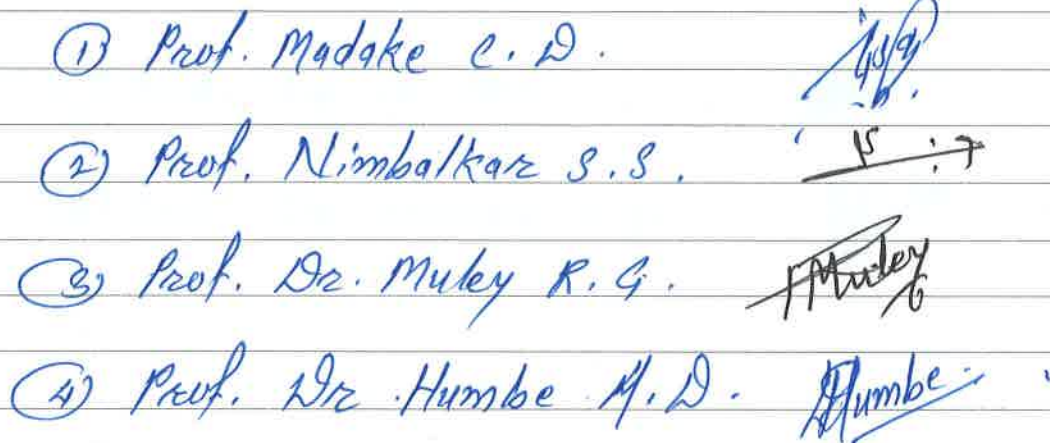 ① Prof. Madake C. D.
② Prof. Nimbalkar S. S.
③ Prof. Dr. Muley R. G. Muley
④ Prof. Dr. Humbe M. D. Humbe